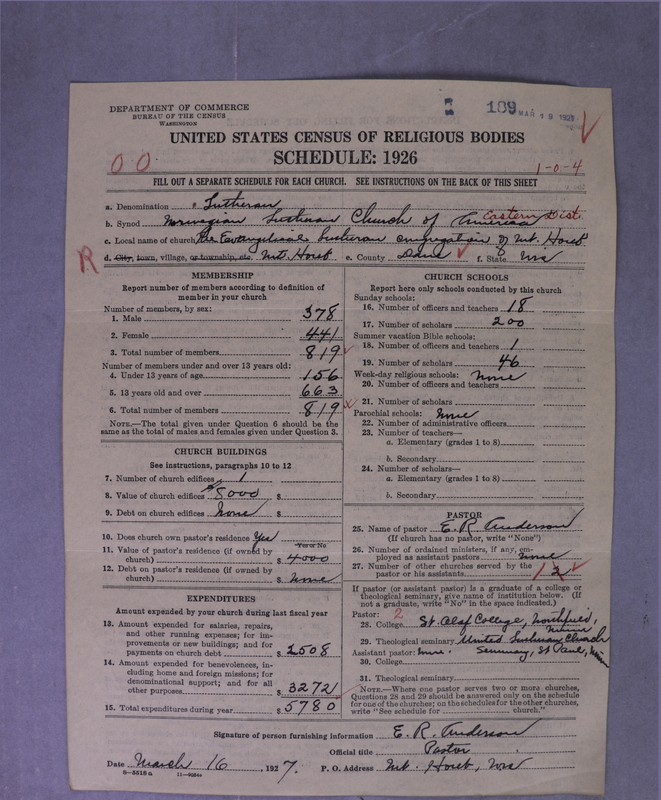 DEPARTMENT OF COMMERCE
BUREAU OF THE CENSUS
WASHINGTON
189 MAR 19 1927
UNITED STATES CENSUS OF RELIGIOUS BODIES
SCHEDULE: 1926
0 0
1-0-4
FILL OUT A SEPARATE SCHEDULE FOR EACH CHURCH. SEE INSTRUCTIONS ON THE BACK OF THIS SHEET
a. Denomination Lutheran
b. Synod Norwegian Lutheran Church of America Eastern Dist.
c. Local name of church The Evangelical Lutheran congregation of Mt. Horeb
R
d. City, town, village, or township, etc. Mt. Horeb e. County Dane f. State Wis
MEMBERSHIP
Report number of members according to definition of
member in your church
Number of members, by sex:
1. Male 378
2. Female 441
3. Total number of members 819
Number of members under and over 13 years old:
4. Under 13 years of age 156
5. 13 years old and over 663
6. Total number of members 819
NOTE.—The total given under Question 6 should be the
same as the total of males and females given under Question 3.
CHURCH BUILDINGS
See instructions, paragraphs 10 to 12
7. Number of church edifices 1
8. Value of church edifices 8000 $
9. Debt on church edifices None $
10. Does church own pastor's residence Yes
Yes or No
11. Value of pastor's residence (if owned by
church) $ 4000
12. Debt on pastor's residence (if owned by
church) $ None
EXPENDITURES
Amount expended by your church during last fiscal year
13. Amount expended for salaries, repairs,
and other running expenses; for im-
provements or new buildings; and for
payments on church debt $ 2508
14. Amount expended for benevolences, in-
cluding home and foreign missions; for
denominational support; and for all
other purposes $ 3272
15. Total expenditures during year $ 5780
CHURCH SCHOOLS
Report here only schools conducted by this church
Sunday schools:
16. Number of officers and teachers 18
17. Number of scholars 200
Summer vacation Bible schools:
18. Number of officers and teachers 1
19. Number of scholars 46
Week-day religious schools: None
20. Number of officers and teachers
21. Number of scholars
Parochial schools: None
22. Number of administrative officers
23. Number of teachers—
a. Elementary (grades 1 to 8)
b. Secondary
24. Number of scholars—
a. Elementary (grades 1 to 8)
b. Secondary
PASTOR
25. Name of pastor E. R. Anderson
(If church has no pastor, write "None")
26. Number of ordained ministers, if any, em-
ployed as assistant pastors None
27. Number of other churches served by the
pastor or his assistants 1 2
If pastor (or assistant pastor) is a graduate of a college or
theological seminary, give name of institution below. (If
not a graduate, write "No" in the space indicated.)
Pastor: 2
28. College St. Olaf College, Northfield, Minn
29. Theological seminary United Lutheran Church
Assistant pastor: None. Seminary, St Paul, Minn
30. College
31. Theological seminary
NOTE.—Where one pastor serves two or more churches,
Questions 28 and 29 should be answered only on the schedule
for one of the churches; on the schedules for the other churches,
write "See schedule for church."
Signature of person furnishing information E. R. Anderson
Official title Pastor
Date March 16, 1927. P. O. Address Mt. Horeb, Wis